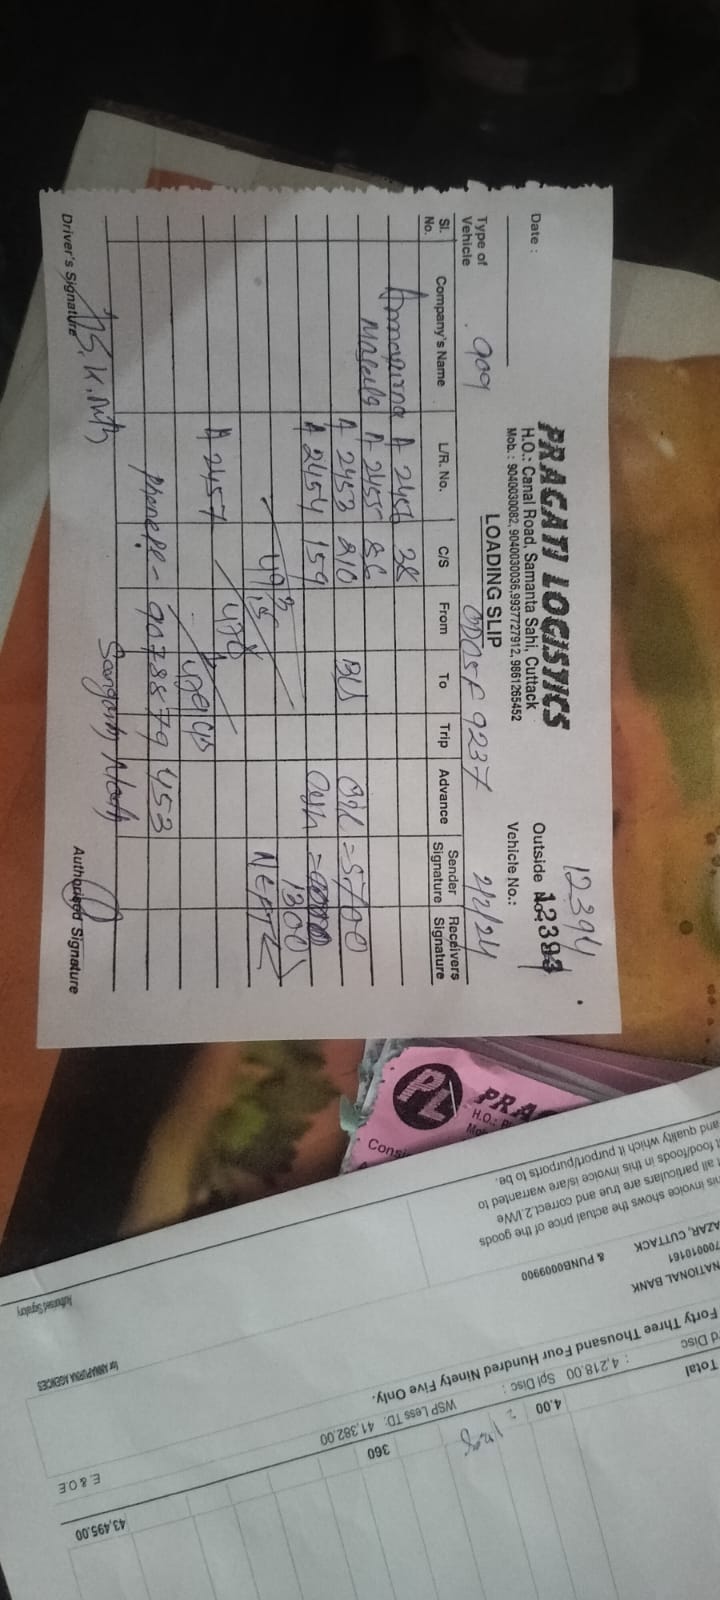 PRAGATI LOGISTICS
H.O.: Canal Road, Samanta Sahi, Cuttack
Mob.: 9040030082, 9040030036, 9937727912, 9861265452
12394
Outside No.
Date :
LOADING SLIP
Vehicle No.:
Type of Vehicle 909
OD05F 9237
2/2/24
Sl. No. Company's Name L/R. No. C/S From To Trip Advance Sender Signature Receivers Signature
Annapurna A 2456 38
A 2455 86
A 2453 210 BLS Oil = 5700
A 2454 159 Cash =
1300
NEFT
A 2457
Phonepe - 9078879453
Driver's Signature
Authorised Signature
PL
PRA
H.O.:
Consi
his invoice shows the actual price of the goods
all particulars are true and correct.2.I/We
food/foods in this invoice is/are warranted to
and quality which it purport/purports to be.
AZAR, CUTTACK
700010161
& PUNB0009900
NATIONAL BANK
Authorised Signatory
for ANNAPURNA AGENCES
Forty Three Thousand Four Hundred Ninety Five Only.
d Disc : 4,218.00 Spl Disc :
WSP Less TD: 41,382.00
Total 4.00 360 43,495.00
E. & O.E